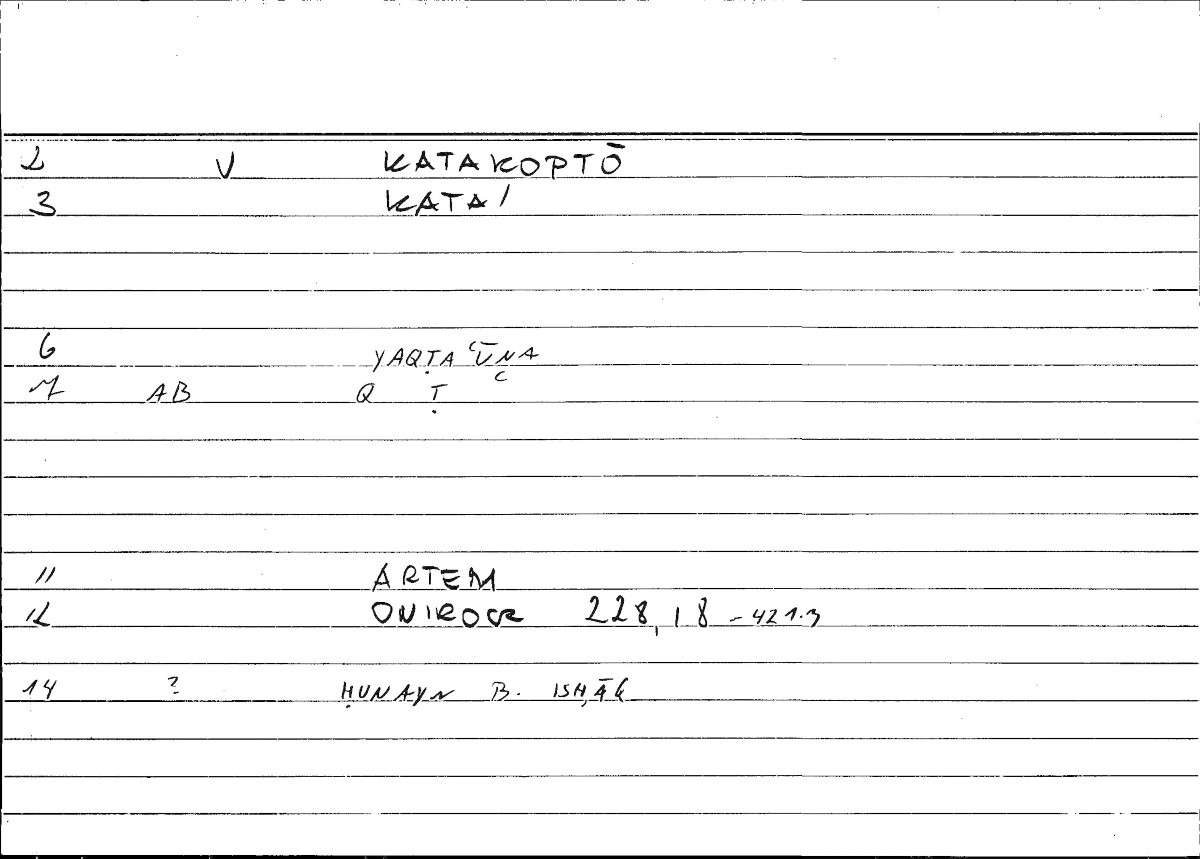 2 V KATAKOPTŌ
3 KATA/
6 YAQṬAʿŪNA
7 AB Q Ṭ ʿ
11 ARTEM
12 ONIROCR 228,18 - 421.3
14 ? ḤUNAYN B. ISḤĀQ